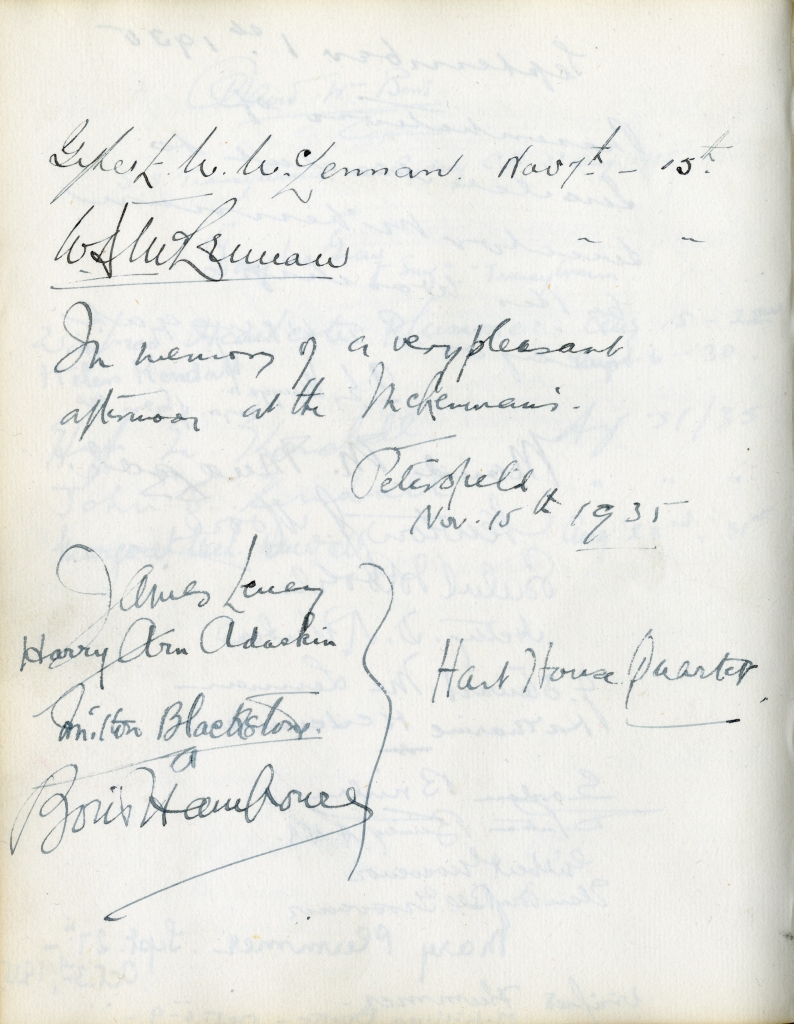 McLennan. Nov 7th – 15th
W S McLennan " "
In memory of a very pleasant
afternoon at the McKennan's.
Petersfield
Nov. 15th 1935
James Levey
Harry Arn Adaskin
Milton Blackstone.
Boris Hambourg
Hart House Quartet.